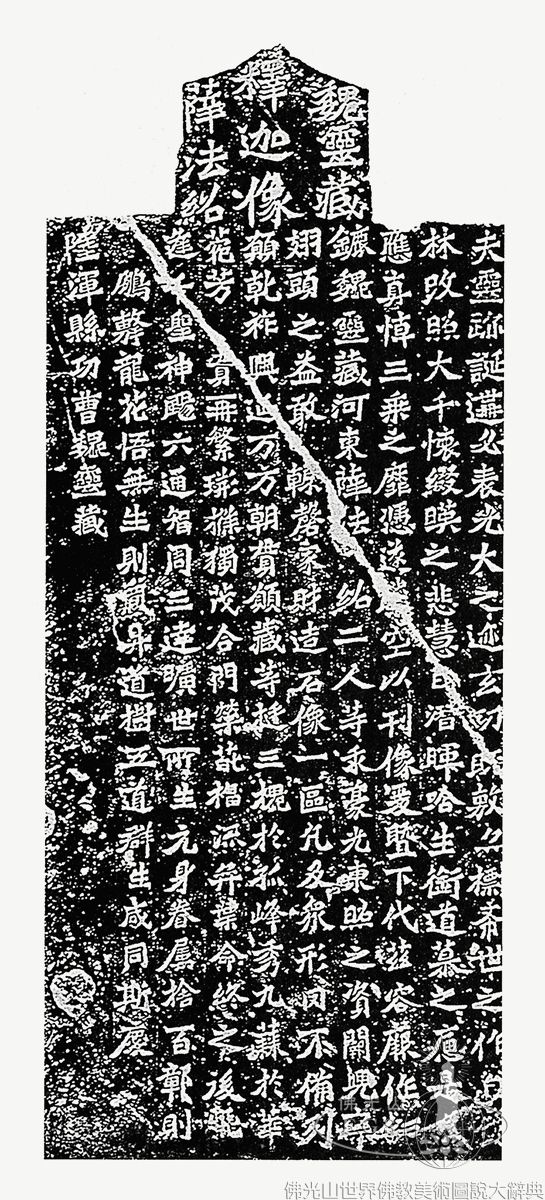 魏靈藏
釋迦像
薛法紹
夫靈跡誕遘必表光大之迹玄功既敷亦標希世之作自
林改照大千懷綴暎之悲慧日潛暉唅生銜道慕之痛是
應真悼三乘之靡憑遂騰空以刊像爰暨下代茲容厥作鉅
鏕魏靈藏河東薛法紹二人等求豪光東照之資闕兜率
翅頭之益敢輒罄家財造石像一區凡及眾形罔不備列
願乾祚興延万方朝貫願藏等挺三槐於孤峰秀九蕀於華
菀芳實再繁荊條獨茂合門榮葩福流弈葉命終之後飛
逢千聖神颺六通智周三達曠世所生元身眷屬捨百鄣則
鵬擊龍花悟無生則鳳昇道樹五道群生咸同斯慶
陸渾縣功曹魏靈藏
佛光山世界佛教美術圖說大辭典